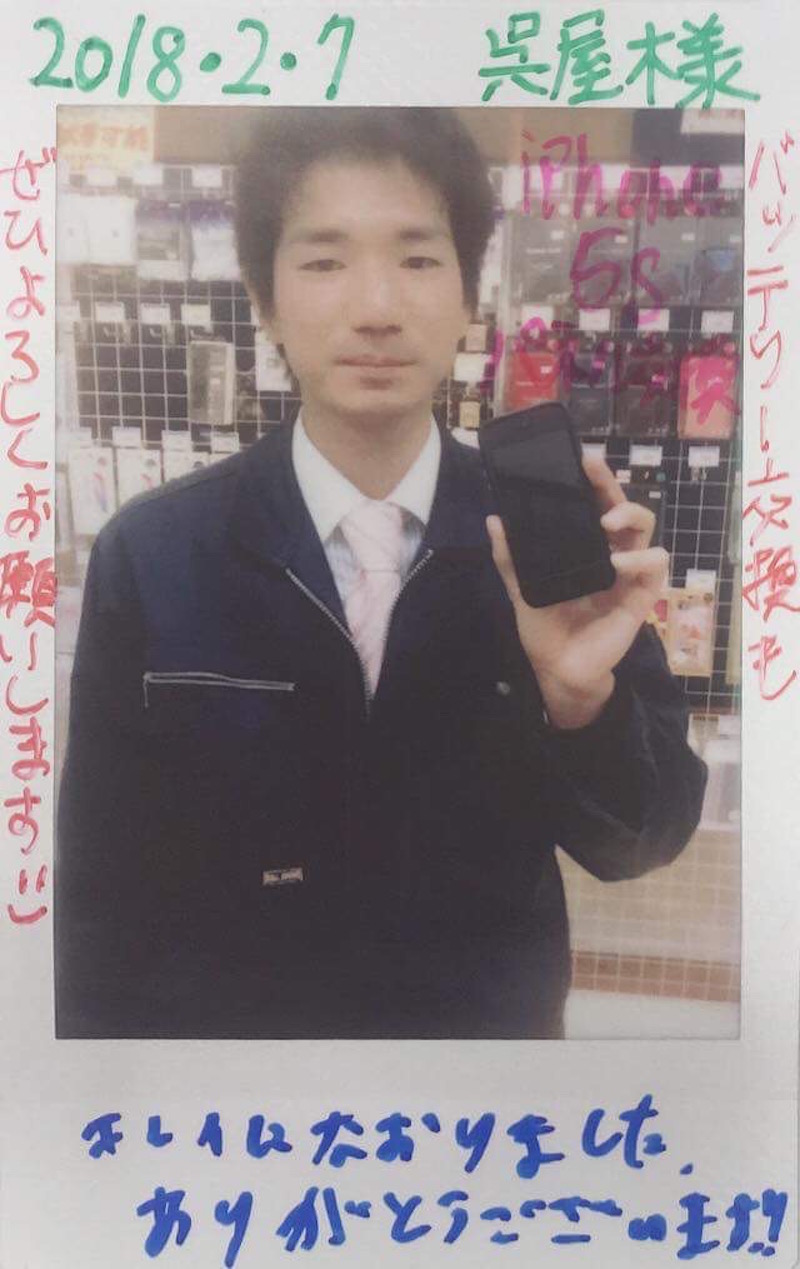 2018・2・7 呉屋様
iPhone
5s
バッテリー交換も
ぜひよろしくお願いします!!
キレイになおりました。
ありがとうございます!!